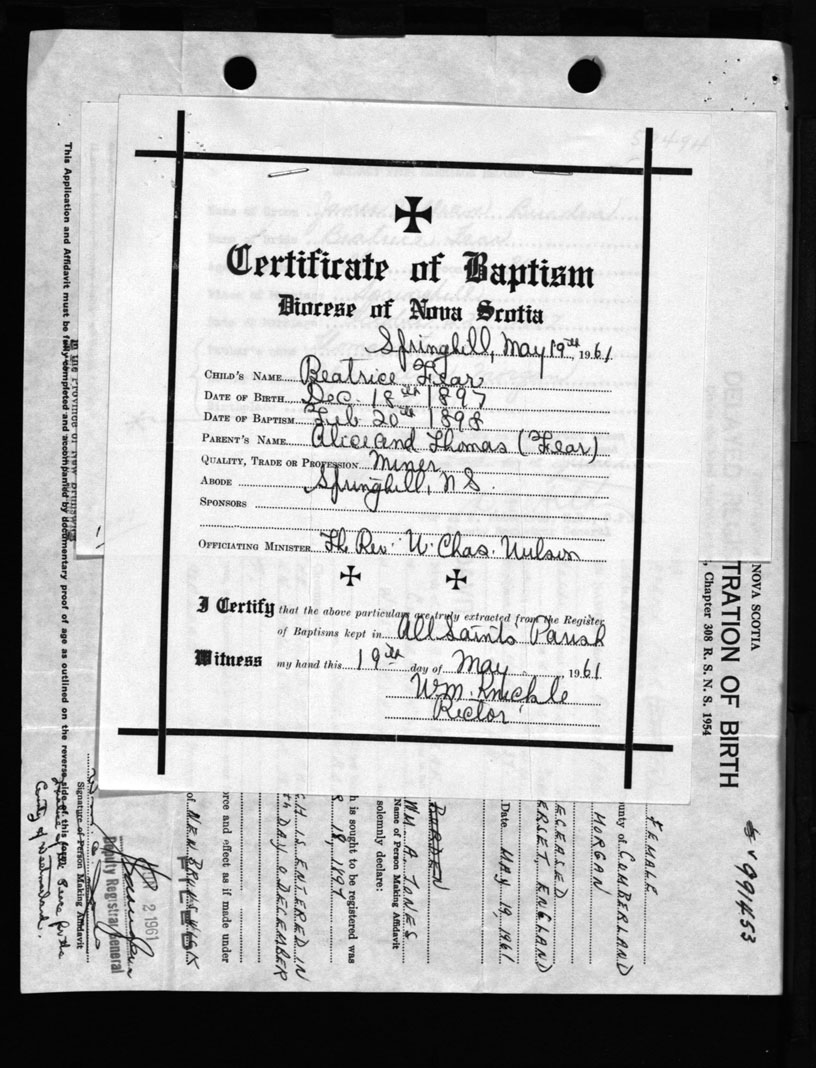 Certificate of Baptism
Diocese of Nova Scotia
Springhill, May 19th, 1961
CHILD'S NAME Beatrice Fear
DATE OF BIRTH Dec. 18th 1897
DATE OF BAPTISM Feb 20th 1898
PARENT'S NAME Alice and Thomas (Fear)
QUALITY, TRADE OR PROFESSION Miner
ABODE Springhill, N S.
SPONSORS
OFFICIATING MINISTER Th Rev. W. Chas. Wilson
I Certify that the above particulars are truly extracted from the Register
of Baptisms kept in All Saints Parish
Witness my hand this 19th day of May, 1961
Wm. Knickle
Rector
This Application and Affidavit must be fully completed and accompanied by documentary proof of age as outlined on the reverse side of this form.
In the Province of New Brunswick
NOVA SCOTIA
TRATION OF BIRTH
, Chapter 308 R. S. N. S. 1954
991453
FEMALE
unty of CUMBERLAND
MORGAN
ECEASED
ERSET, ENGLAND
Date MAY 19, 1961
BURDEN
WM. A. JONES
Name of Person Making Affidavit
solemnly declare:
h is sought to be registered was
18, 1897
H IS ENTERED IN
th DAY O DECEMBER
orce and effect as if made under
of NEW BRUNSWICK
2 1961
Deputy Registrar General
Signature of Person Making Affidavit
County of Westmorland.